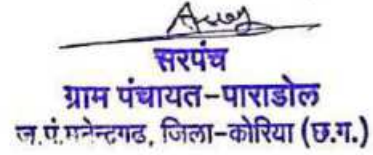 सरपंच
ग्राम पंचायत-पाराडोल
ज.पं.मनेन्द्रगढ, जिला-कोरिया (छ.ग.)